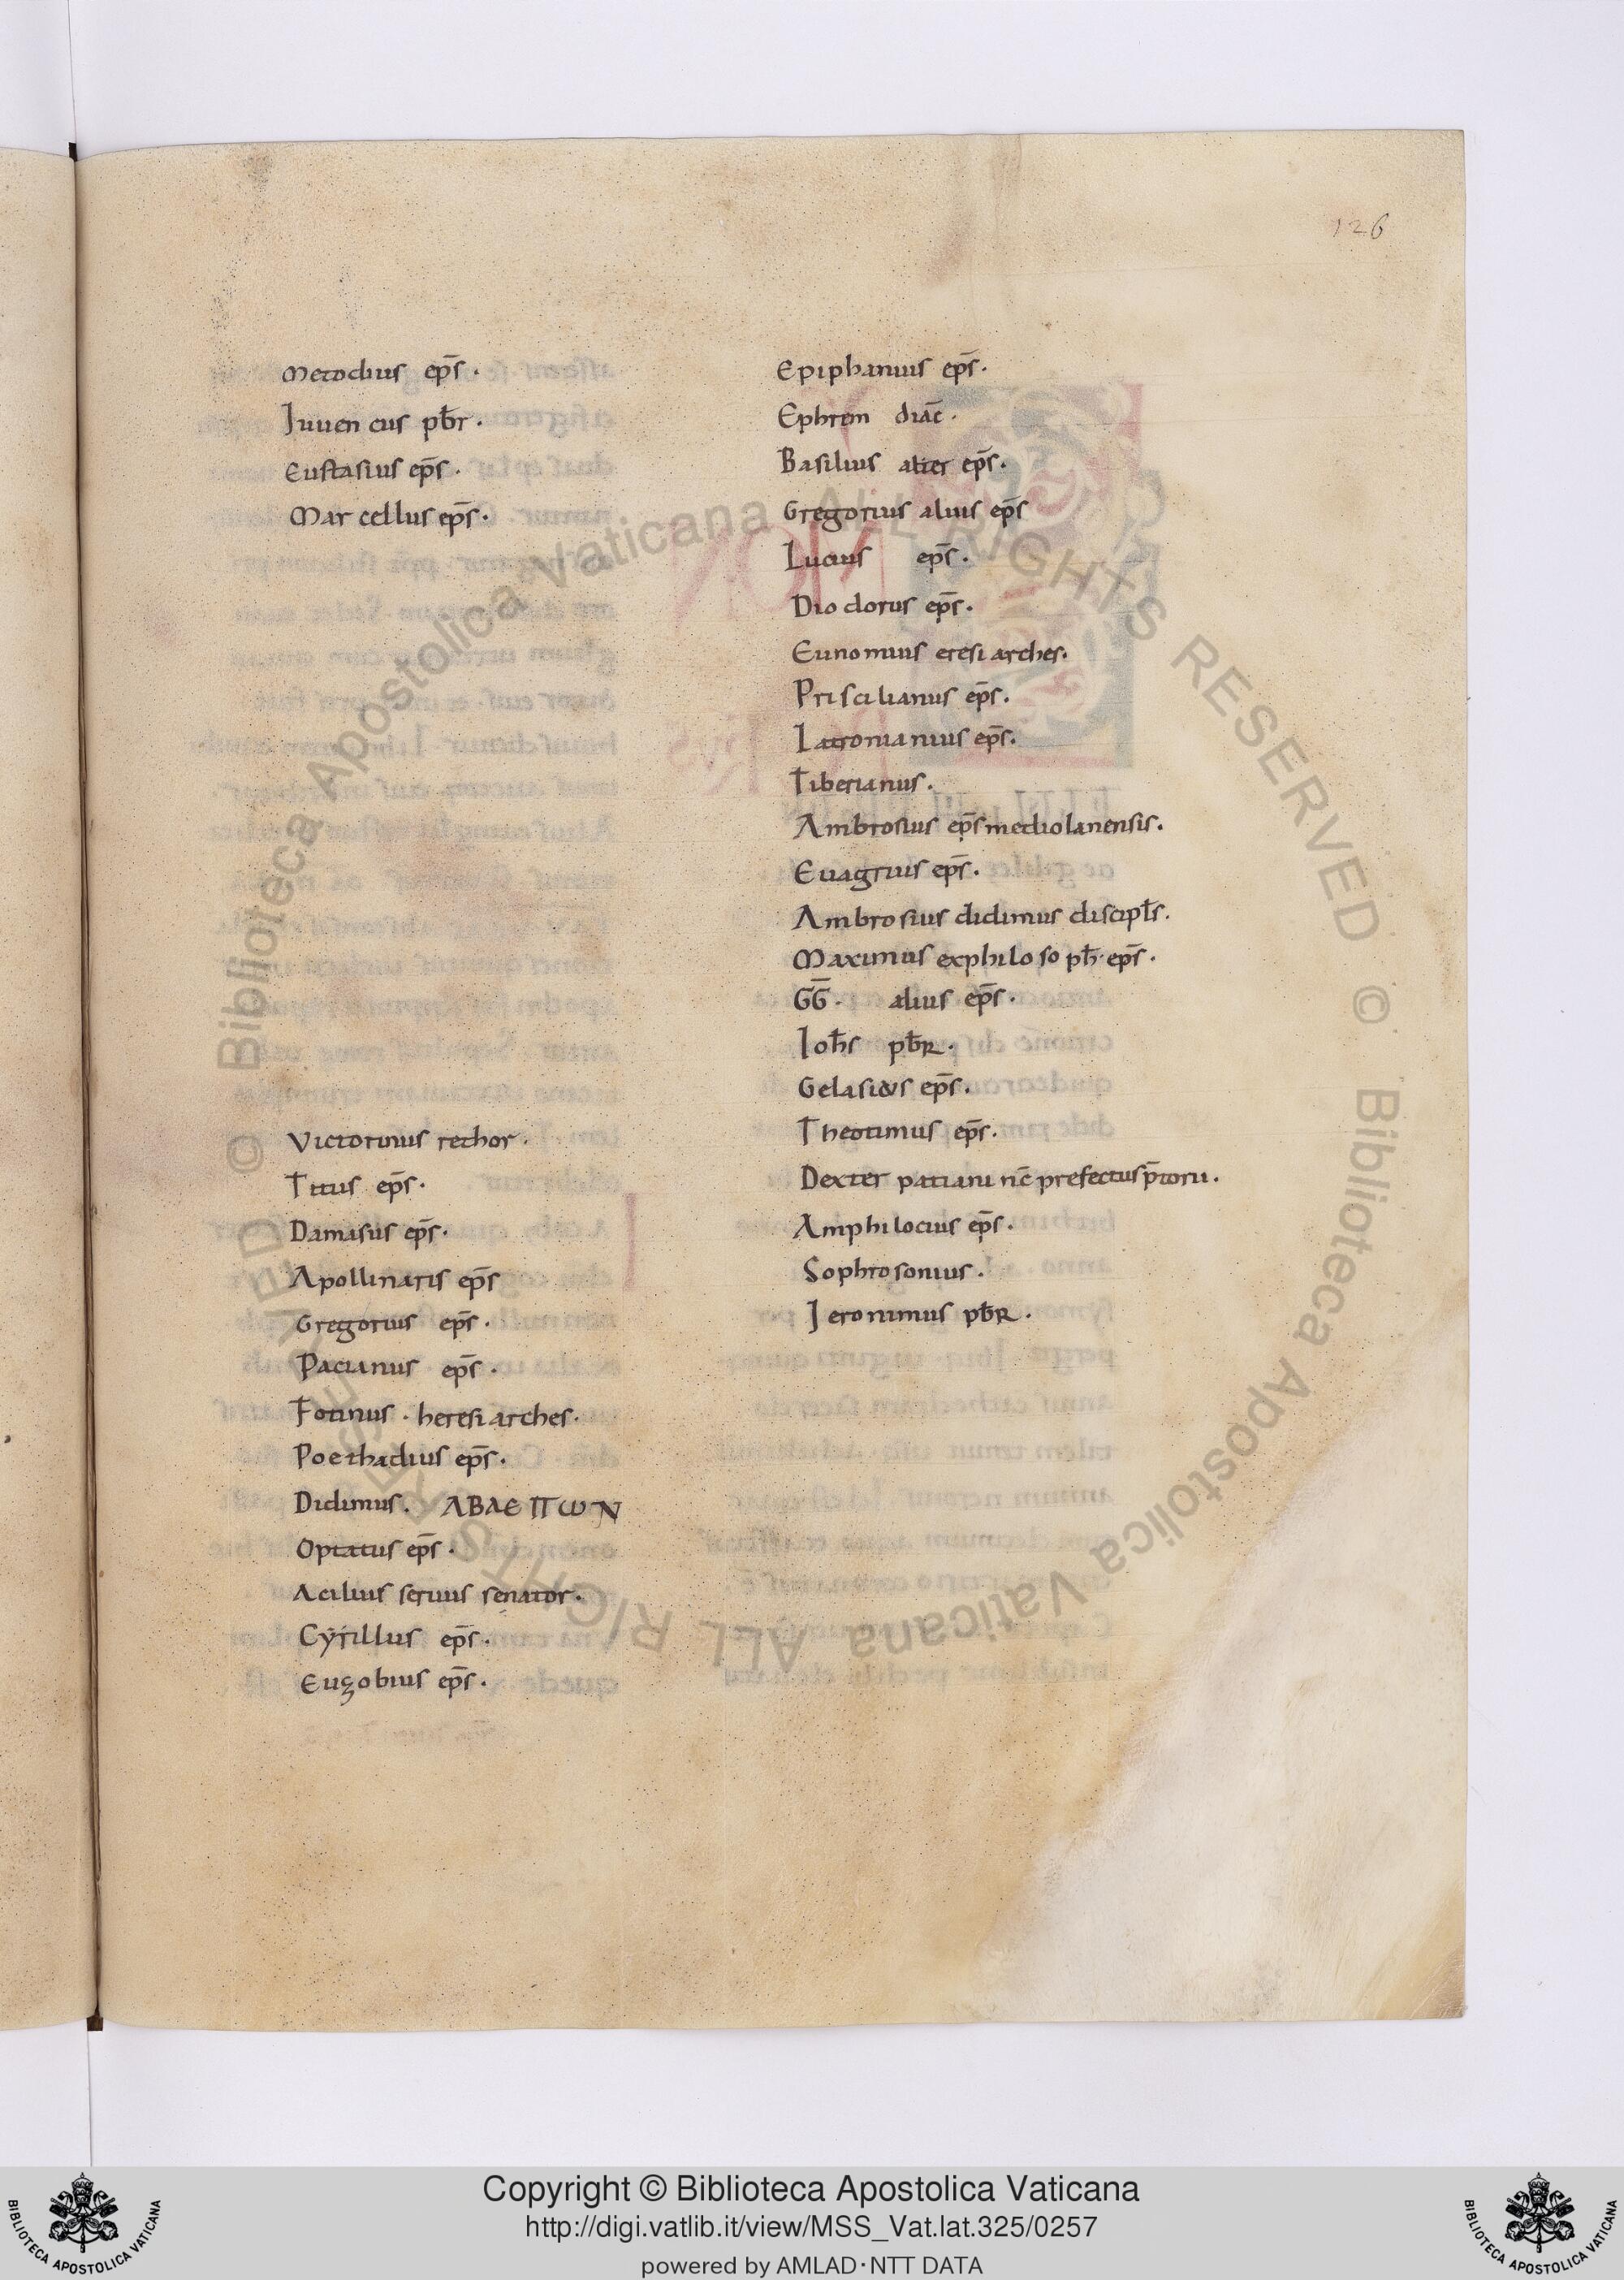 126
Metodius ep̄s.
Iuuencus pb̄r.
Eustasius ep̄s.
Marcellus ep̄s.
Victorinus rethor.
Titus ep̄s.
Damasus ep̄s.
Apollinaris ep̄s
Gregorius ep̄s.
Pacianus ep̄s.
Fotinus. heresiarches.
Poethadius ep̄s.
Didimus. ΑΒΛΕΠΩΝ
Optatus ep̄s.
Acilius seruus senator.
Cyrillus ep̄s.
Euzobius ep̄s.
Epiphanius ep̄s.
Ephrem diac̄.
Basilius alter ep̄s.
Gregorius alius ep̄s
Lucius ep̄s.
Diodorus ep̄s.
Eunomius eresiarches.
Priscilianus ep̄s.
Latronianus ep̄s.
Tiberianus.
Ambrosius ep̄s mediolanensis.
Euagrius ep̄s.
Ambrosius didimus discipl̄s.
Maximus exphilosoph̄. ep̄s.
ḠḠ. alius ep̄s.
Ioh̄s pb̄r.
Gelasius ep̄s.
Theotimus ep̄s.
Dexter patiani nc̄ prefectus p̄toru.
Amphilocius ep̄s.
Sophrosonius.
Ieronimus pb̄r.
© Biblioteca Apostolica Vaticana ALL RIGHTS RESERVED © Biblioteca Apostolica Vaticana ALL RIGHTS RESERVED
Copyright © Biblioteca Apostolica Vaticana
http://digi.vatlib.it/view/MSS_Vat.lat.325/0257
powered by AMLAD·NTT DATA
BIBLIOTECA APOSTOLICA VATICANA
BIBLIOTECA APOSTOLICA VATICANA